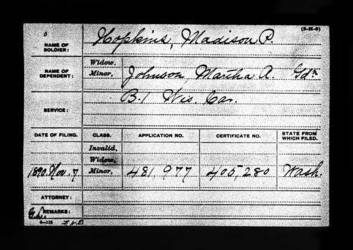 (3-25-0)
NAME OF SOLDIER: Hopkins, Madison P.
NAME OF DEPENDENT: Widow, Minor, Johnson Martha A. Gdn
SERVICE: B. 1 Wis. Cav.
DATE OF FILING. CLASS. APPLICATION NO. CERTIFICATE NO. STATE FROM WHICH FILED.
Invalid,
Widow,
1890 Nov. 7 Minor, 481,977 405,280 Wash.
ATTORNEY:
REMARKS: